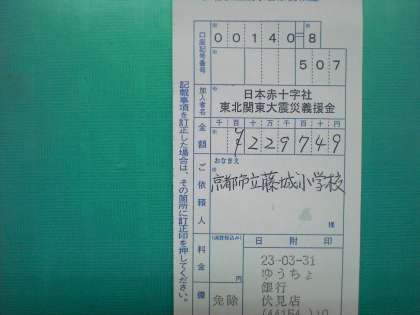 00140=8
口座記号番号
507
加入者名
日本赤十字社
東北関東大震災義援金
金額
千百十万千百十円
¥229749
おなまえ
ご依頼人
京都市立藤城小学校
様
料金
(消費税込み)
円
日附印
備
免除
23-03-31
ゆうちょ
銀行
伏見店
記載事項を訂正した場合は、その箇所に訂正印を押してください。